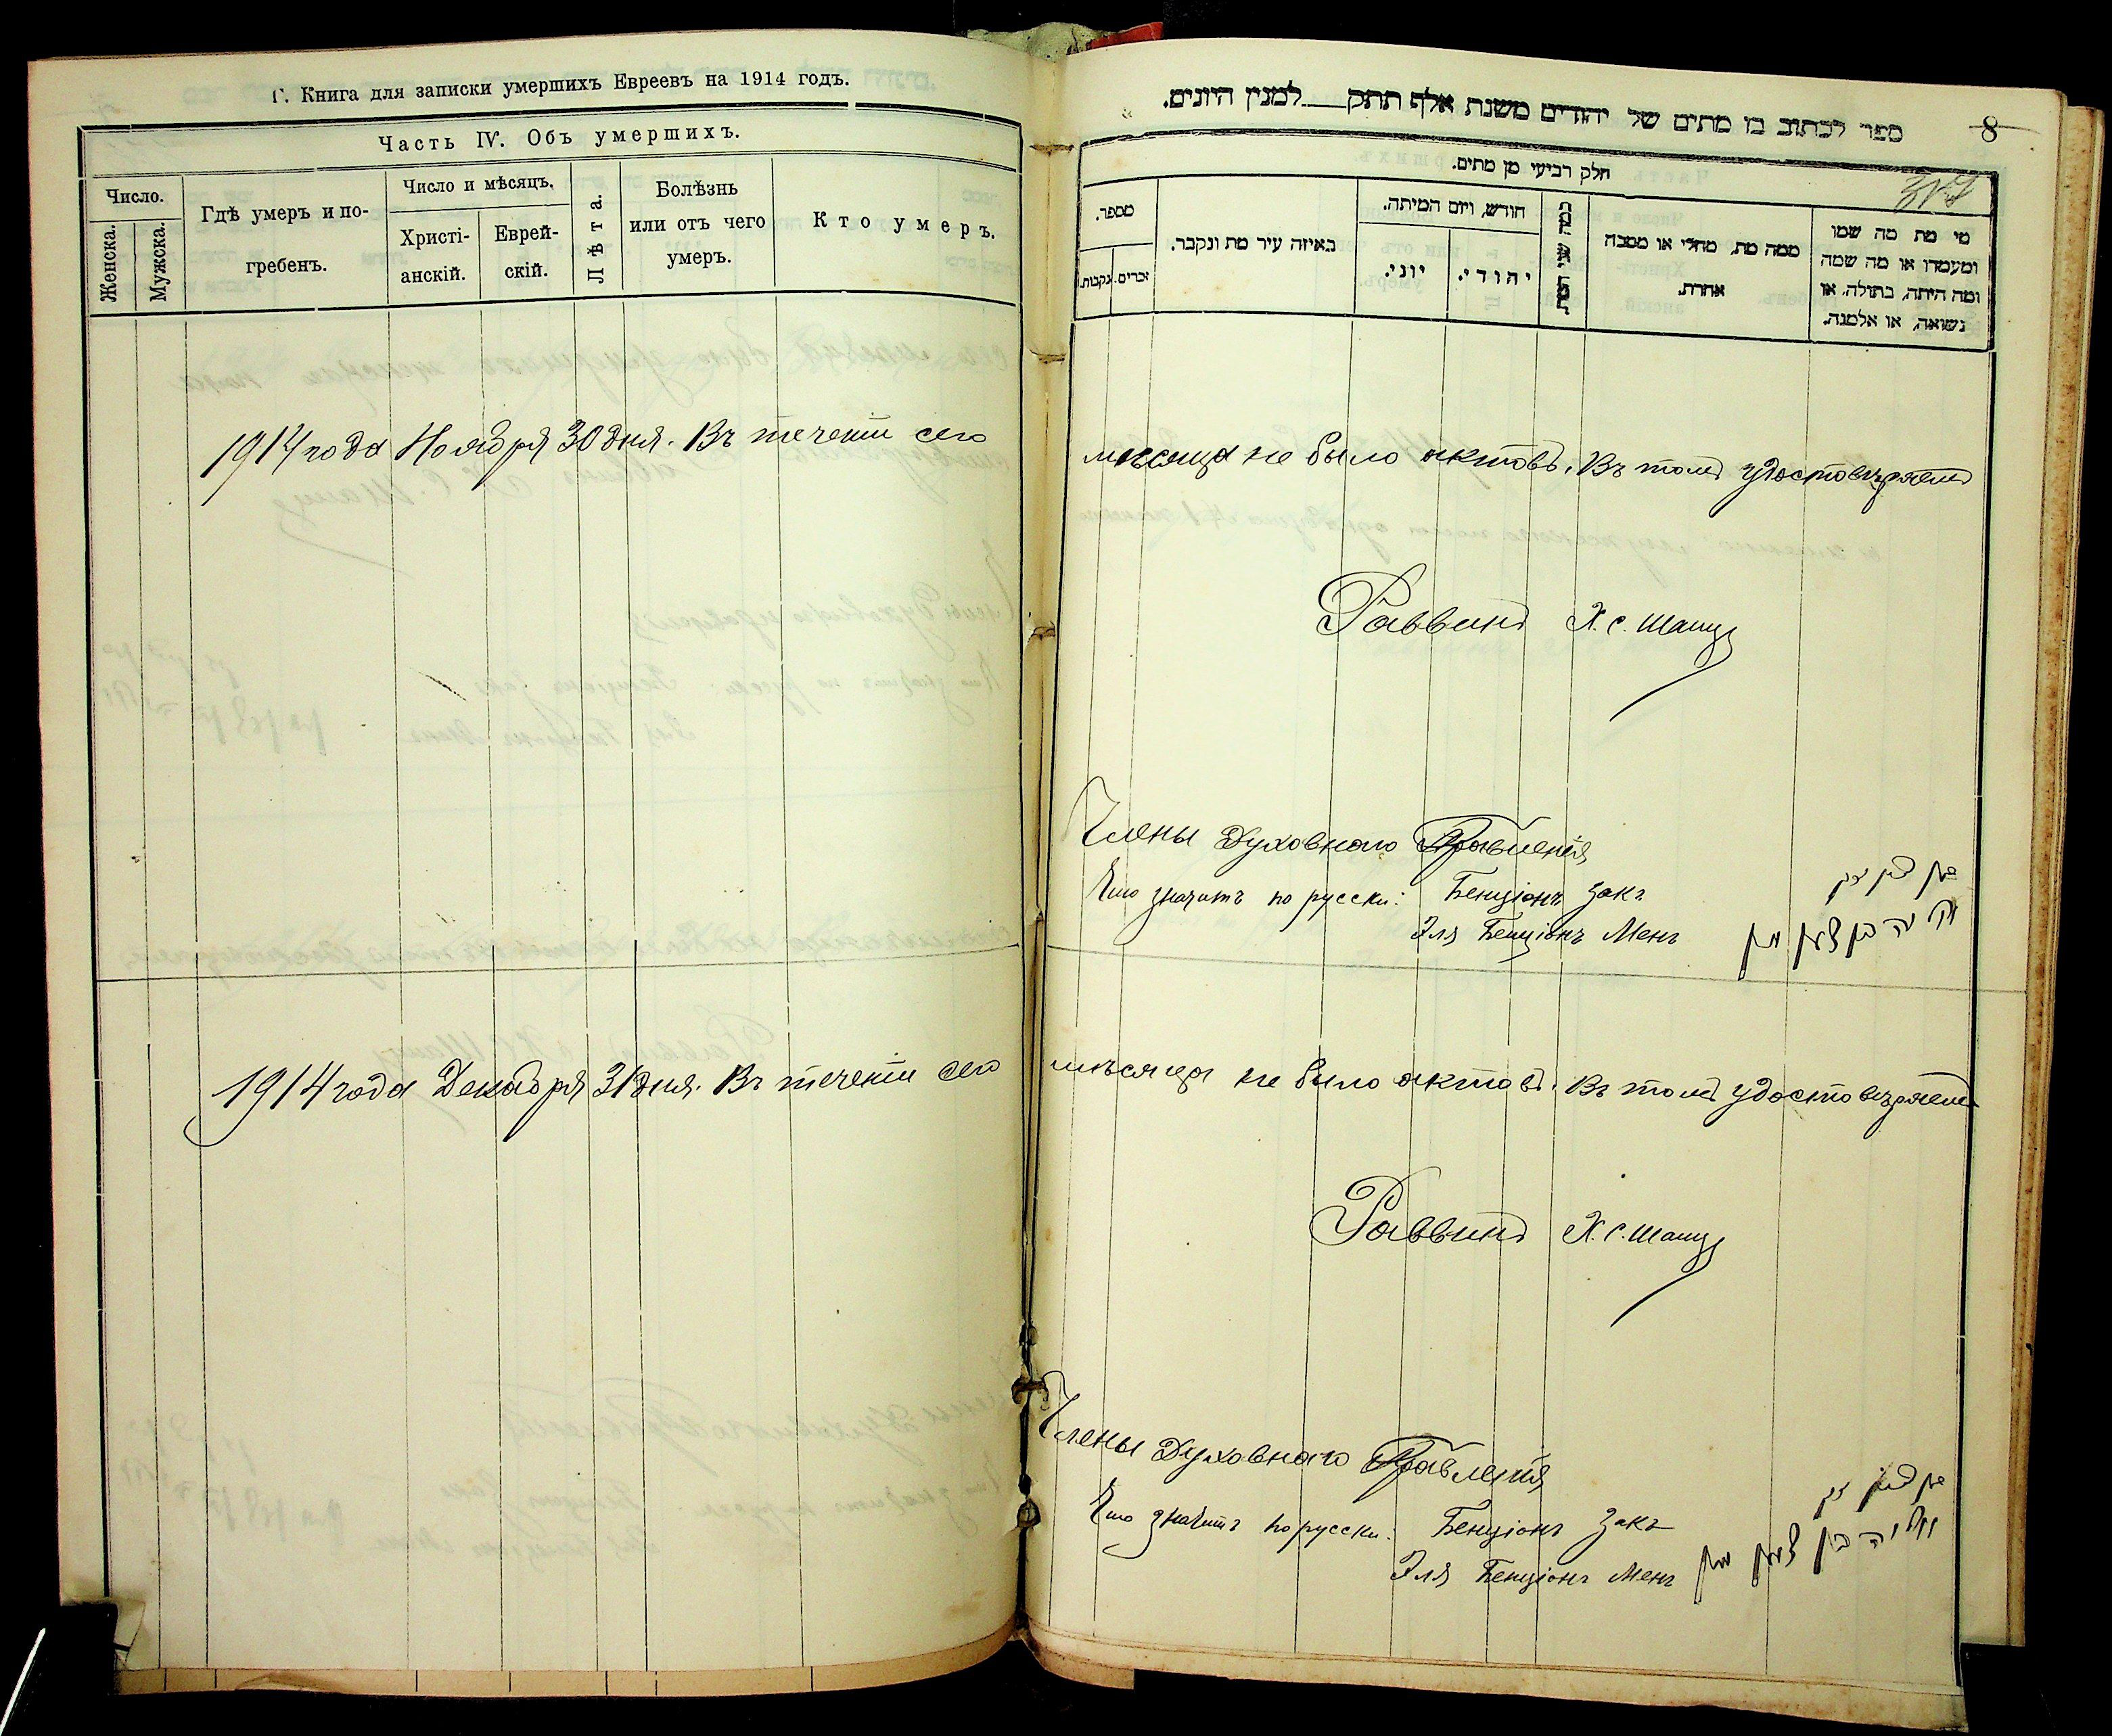 Г. Книга для записки умершихъ Евреевъ на 1914 годъ.
Часть IV. Объ умершихъ.
Число.
Женска.
Мужска.
Гдѣ умеръ и по-
гребенъ.
Число и мѣсяцъ.
Христі-
анскій.
Еврей-
скій.
Лѣта.
Болѣзнь
или отъ чего
умеръ.
Кто умеръ.
ספר לכתוב בו מתים של יהודים משנת אלף תתק למנין היונים.
8
חלק רביעי מן מתים.
מספר.
זכרים.
נקבות.
באיזה עיר מת ונקבר.
חודש, ויום המיתה.
יוני.
יהודי.
כמה שני המת
ממה מת, מחלי או מסבה
אחרת.
מי מת מה שמו
ומעמדו או מה שמה
ומה היתה, בתולה, או
נשואה, או אלמנה.
1914 года Ноября 30 дня. Въ теченіи сего мѣсяца не было актовъ. Въ томъ удостовѣряемъ
Раввинъ Х. С. Шапиро
Члены Духовнаго Правленія
Что значитъ по русски: Бенціонъ Закъ
Эля Бенціонъ Менъ
1914 года Декабря 31 дня. Въ теченіи сего мѣсяца не было актовъ. Въ томъ удостовѣряемъ
Раввинъ Х. С.
Члены Духовнаго Правленія
Что значитъ по русски: Бенціонъ Закъ
Эля Бенціонъ Менъ